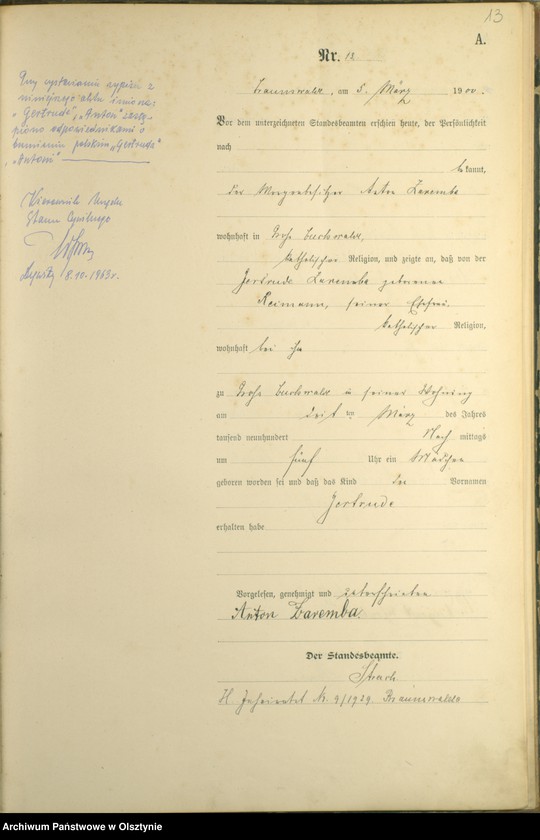 13
A.
Nr. 12
Braunswalde, am 5. März 1900.
Vor dem unterzeichneten Standesbeamten erschien heute, der Persönlichkeit
nach
bekannt,
der Zaremba
wohnhaft in Groß Buchwalde,
katholischer Religion, und zeigte an, daß von der
Gertrude Zaremba geborenen
Reimann, seiner Ehefrau,
katholischer Religion,
wohnhaft bei ihm
zu Groß Buchwalde in seiner Wohnung
am März des Jahres
tausend neunhundert Nach mittags
um fünf Uhr ein Mädchen
geboren worden sei und daß das Kind den Vornamen
Gertrude
erhalten habe
Vorgelesen, genehmigt und unterschrieben
Anton Zaremba.
Der Standesbeamte.
H. Geheiratet Nr. 9/1929. Braunswalde
Przy wystawianiu wypisu z
niniejszego aktu imiona
"Gertrude", "Anton"
odpowiednikami o
brzmieniu polskim "Gertruda"
"Antoni"
Kierownik Urzędu
Stanu Cywilnego
8.10.1963r.
Archiwum Państwowe w Olsztynie